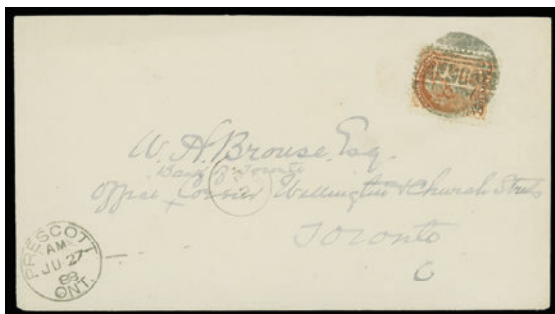 W. H. Brouse, Esq.
Bank of Toronto
Office Corner Wellington & Church Streets
Toronto
PRESCOTT
AM
JU 27
88
ONT.